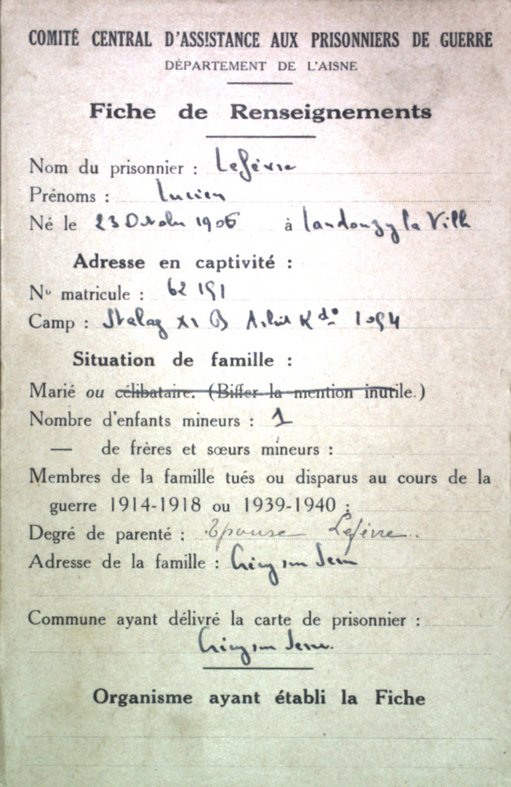 COMITÉ CENTRAL D'ASSISTANCE AUX PRISONNIERS DE GUERRE
DÉPARTEMENT DE L'AISNE
Fiche de Renseignements
Nom du prisonnier : Lefèvre
Prénoms : Lucien
Né le 23 Octobre 1906 à Landouzy la Ville
Adresse en captivité :
No matricule : 62 191
Camp : Stalag XI B Arbeit Kdo 1094
Situation de famille :
Marié ou célibataire. (Biffer la mention inutile.)
Nombre d'enfants mineurs : 1
— de frères et sœurs mineurs :
Membres de la famille tués ou disparus au cours de la
guerre 1914-1918 ou 1939-1940 :
Degré de parenté : Epouse Lefèvre.
Adresse de la famille : Crécy sur Serre
Commune ayant délivré la carte de prisonnier :
Crécy sur Serre.
Organisme ayant établi la Fiche